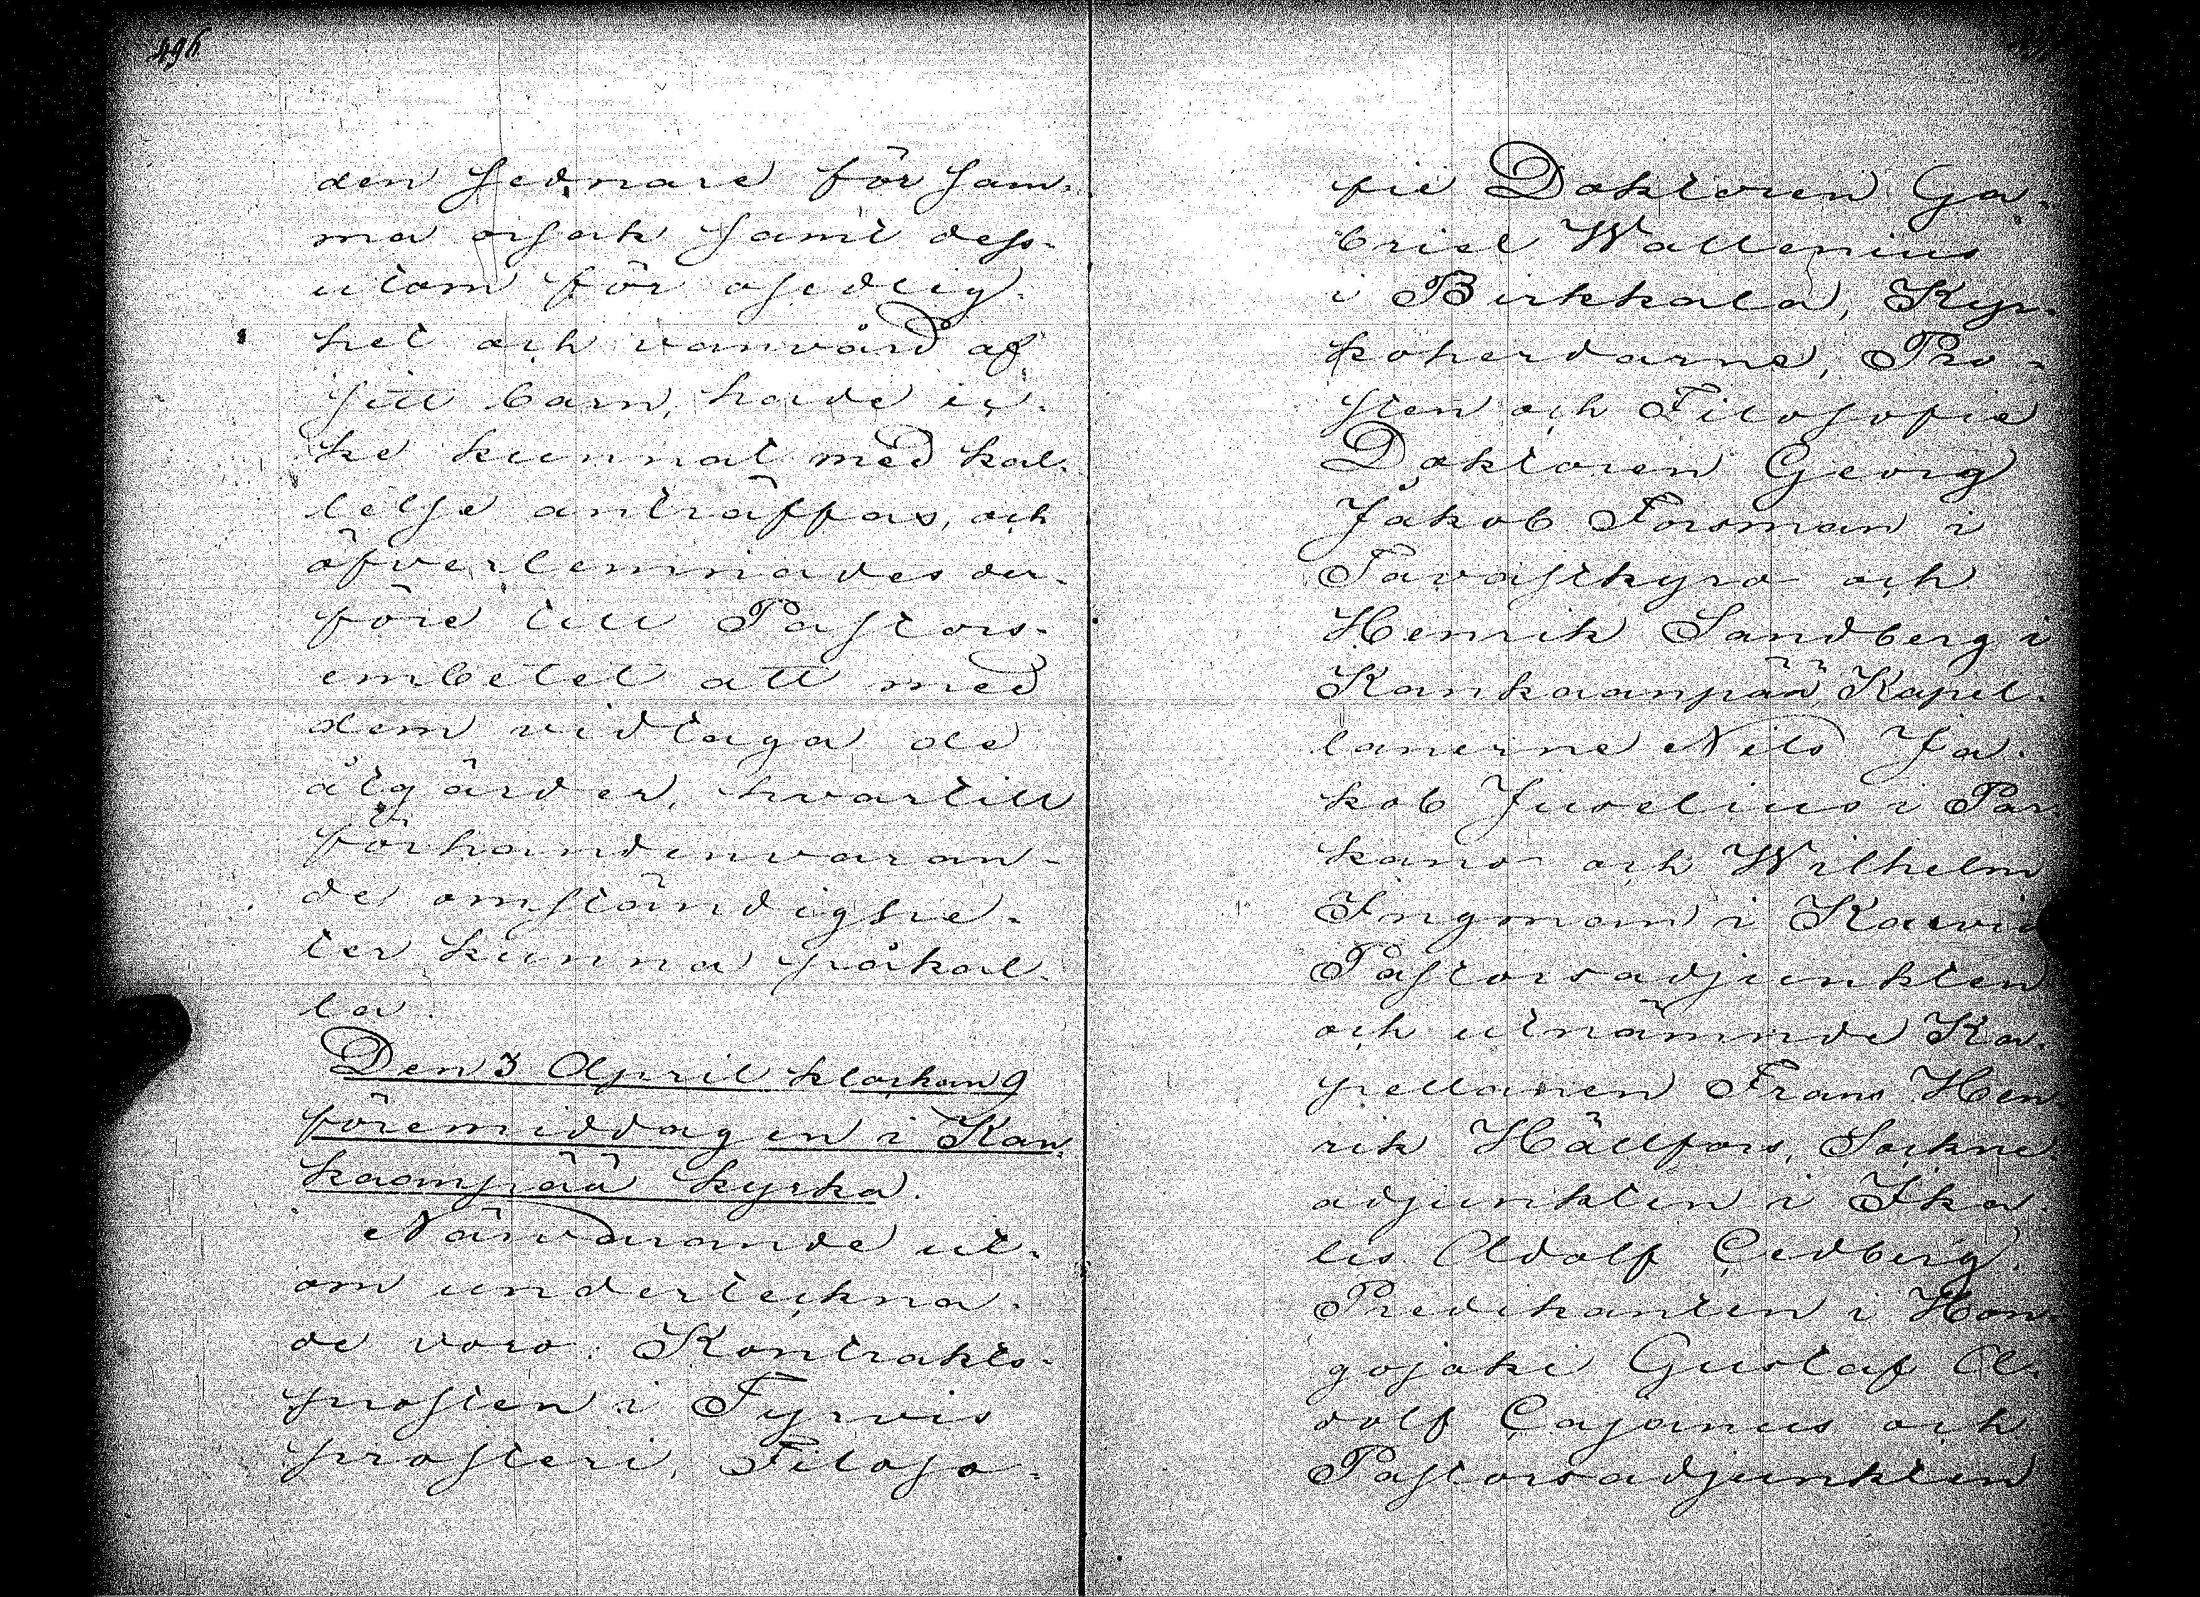 496
den sednare för sam-
ma orsak samt dess-
utom för osedlig-
het och vanvård af
sitt barn, hade ic-
ke kunnat med kal-
lelse anträffas, och
öfverlemnades der-
före till Pastors-
embetet att med
dem vidtaga de
åtgärder, hvartill
förhandenvaran-
de omständighe-
ter kunna påkal-
la.
Den 3 April klockan 9
föremiddagen i Kan-
kaanpää kyrka.
Närvarande ut-
om undertechna-
de voro: Kontrakts-
prosten i Tyrvis
prosteri, Filoso-
fie Doktoren Ga-
briel Wallenius
i Birkkala, Kyr-
koherdarne, Pro-
sten och Filosofie
Doktoren Georg
Jakob Forsman i
Tavastkyro och
Henrik Sandberg i
Kankaanpää, Kapel-
lanerne Nils Ja-
kob Juselius i Par-
kano och Wilhelm
Ingman i Karvia
Pastorsadjunkten
och utnämnde Ka-
pellanen Frans Hen
rik Hällfors, Sockne-
adjunkten i Ika-
lis Adolf Cedberg,
Predikanten i Hon-
gojoki Gustaf A-
dolf Cajanus och
Pastorsadjunkten